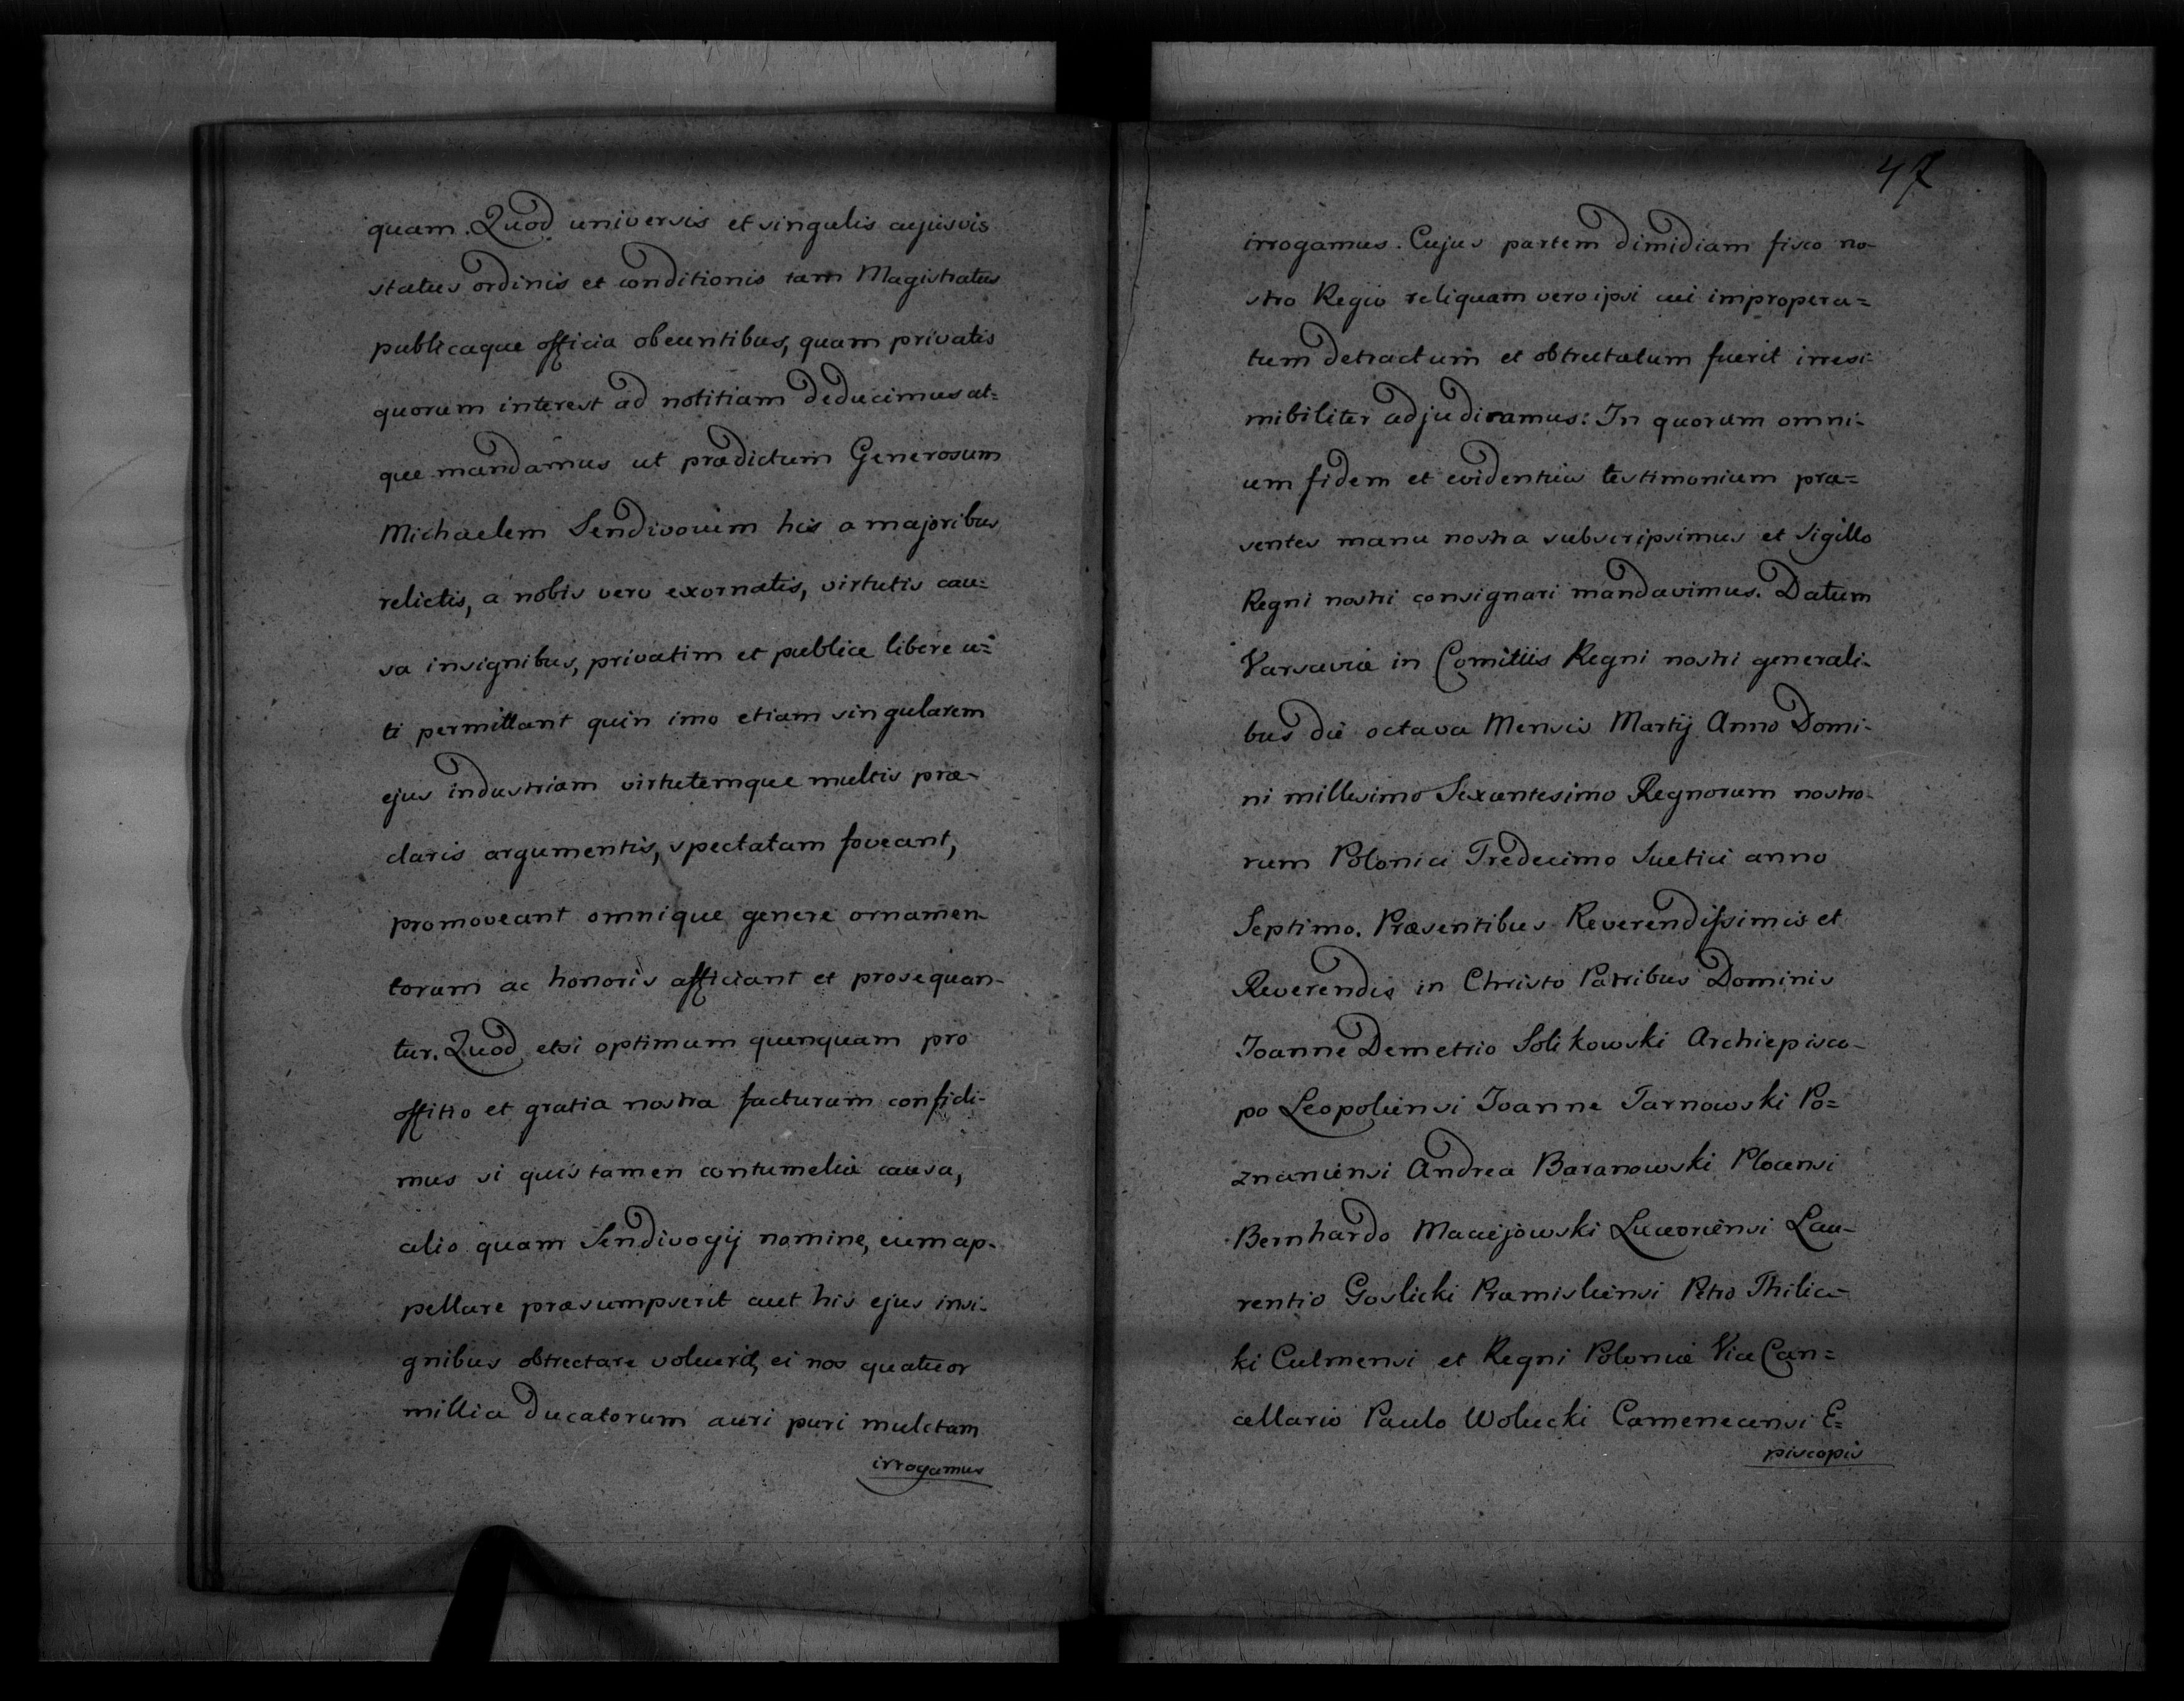 quam. Quod universis et singulis cujusvis
status ordinis et conditionis tam Magistratus
publicaque officia obeuntibus, quam privatis
quorum interest ad notitiam deducimus at=
que mandamus ut prædictum Generosum
Michaelem Sendivoium his a majoribus
relictis, a nobis vero exornatis, virtutis cau=
sa insignibus, privatim et publice libere u=
ti permittant quin imo etiam singularem
ejus industriam virtutemque multis præ-
claris argumentis, spectatam foveant,
promoveant omnique genere ornamen-
torum ac honoris afficiant et prosequan-
tur. Quod etsi optimum quenquam pro
offitio et gratia nostra facturum confidi-
mus si quis tamen contumeliæ causa,
alio quam Sendivogij nomine, eum ap-
pellare præsumpserit aut his ejus insi-
gnibus obtrectare voluerit, ei nos quatuor
millia Ducatorum auri puri mulctam
irrogamus
47
irrogamus. Cujus partem dimidiam fisco no-
stro Regio reliquam vero ipsi cui impropera=
tum detractum et obtrectatum fuerit irresi-
mibiliter adjudicamus: In quorum omni-
um fidem et evidentius testimonium præ=
sentes manu nostra subscripsimus et Sigillo
Regni nostri consignari mandavimus. Datum
Varsaviæ in Comitiis Regni nostri generali-
bus die octava Mensis Martij Anno Domi-
ni millesimo Sexcentesimo Regnorum nostro-
rum Polonici Tredecimo Suetici anno
Septimo. Præsentibus Reverendissimis et
Reverendis in Christo Patribus Dominis
Joanne Demetrio Solikowski Archiepisco-
po Leopoliensi Joanne Tarnowski Po=
znaniensi Andrea Baranowski Plocensi
Bernhardo Maciejowski Luceoriensi Lau-
rentio Goslicki Præmisliensi Petro Thilic-
ki Culmensi et Regni Poloniæ Vice Can=
cellario Paulo Wolucki Camenecensi E=
piscopis